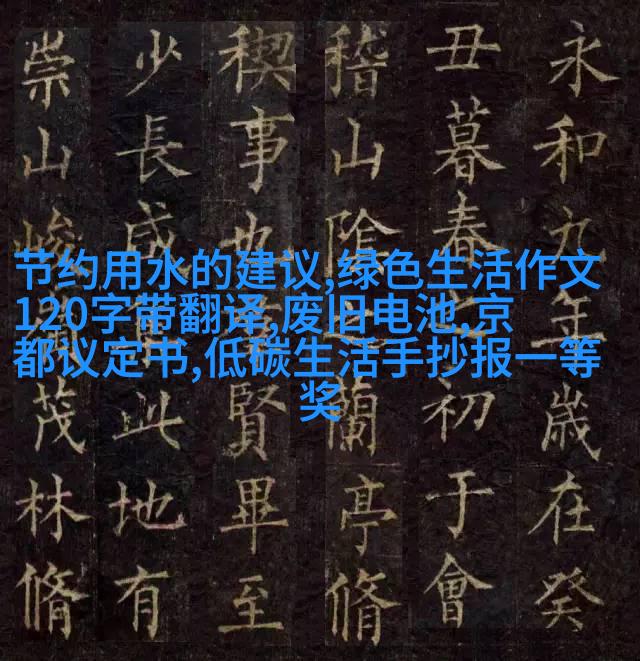 永和九年歲在癸
丑暮春初于會
稽山陰蘭亭脩
稧事也賢畢至
少長咸此地有
崇山峻茂林脩
节约用水的建议,绿色生活作文
120字带翻译,废旧电池,京
都议定书,低碳生活手抄报一等
奖